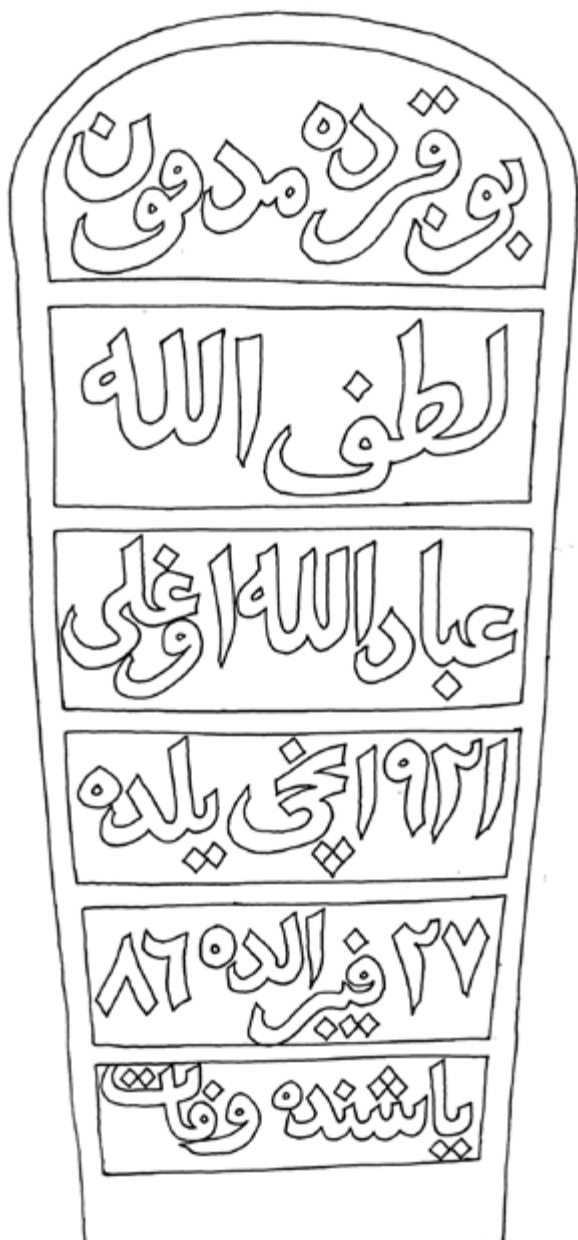 بو قبرده مدفون
لطف الله
عبادالله اوغلى
١٩٢١ نچى يلده
٢٧ فيبرالده ٨٦
ياشنده وفات